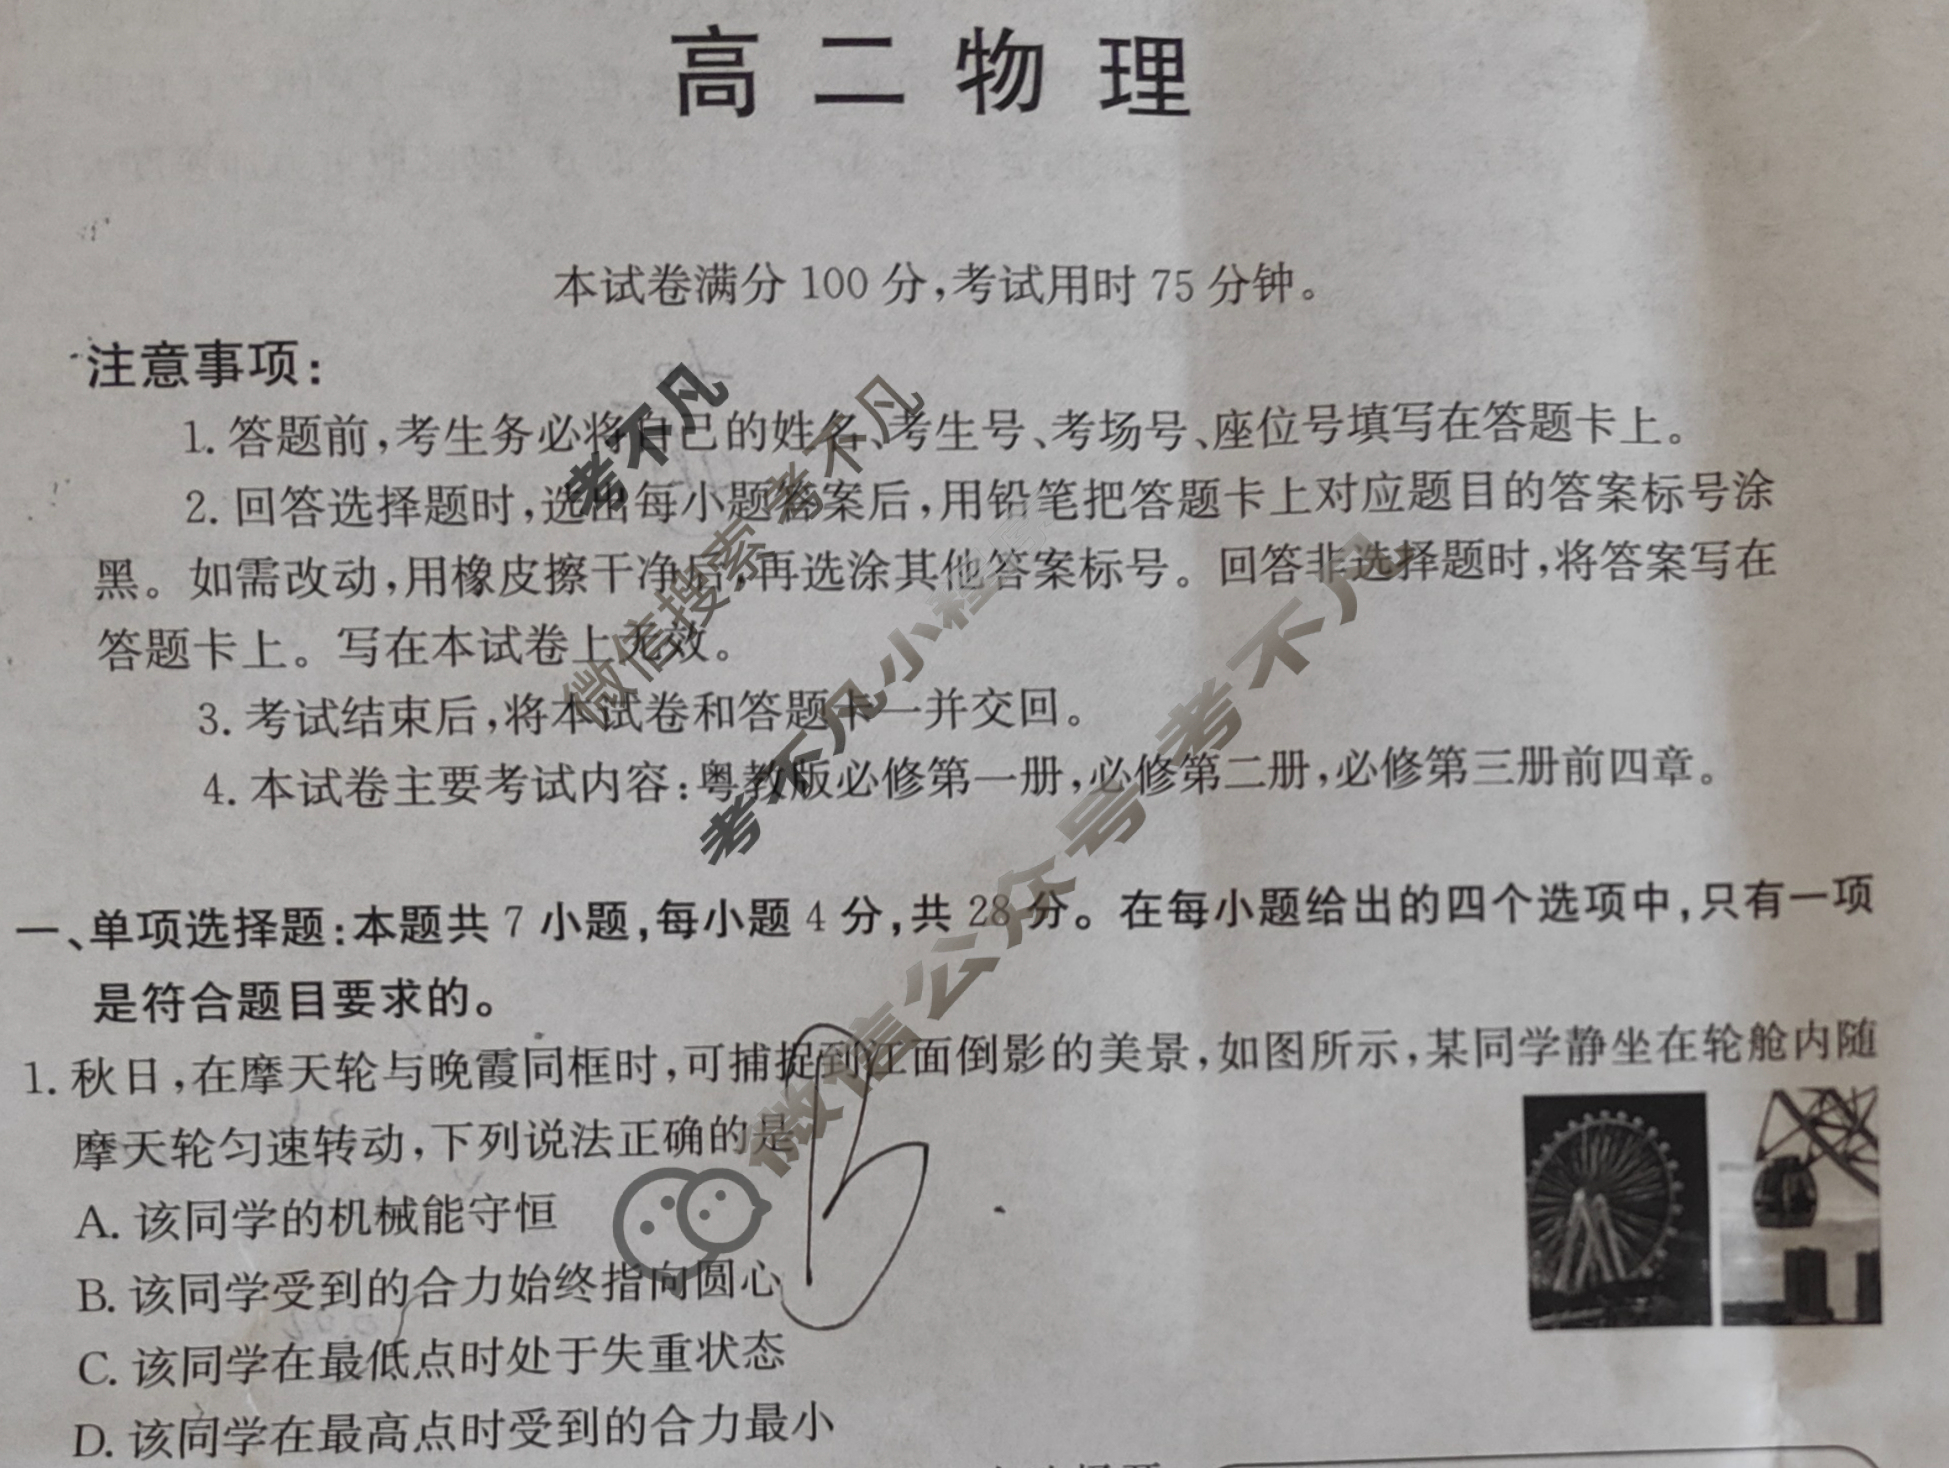 高二物理
本试卷满分100分,考试用时75分钟。
注意事项:
1. 答题前,考生务必将自己的姓名、考生号、考场号、座位号填写在答题卡上。
2. 回答选择题时,选出每小题答案后,用铅笔把答题卡上对应题目的答案标号涂
黑。如需改动,用橡皮擦干净后,再选涂其他答案标号。回答非选择题时,将答案写在
答题卡上。写在本试卷上无效。
3. 考试结束后,将本试卷和答题卡一并交回。
4. 本试卷主要考试内容:粤教版必修第一册,必修第二册,必修第三册前四章。
一、单项选择题:本题共7小题,每小题4分,共28分。在每小题给出的四个选项中,只有一项
是符合题目要求的。
1. 秋日,在摩天轮与晚霞同框时,可捕捉到江面倒影的美景,如图所示,某同学静坐在轮舱内随
摩天轮匀速转动,下列说法正确的是
A. 该同学的机械能守恒
B. 该同学受到的合力始终指向圆心
C. 该同学在最低点时处于失重状态
D. 该同学在最高点时受到的合力最小
B
考不凡
微信搜索考不凡
考不凡小程序
微信公众号考不凡